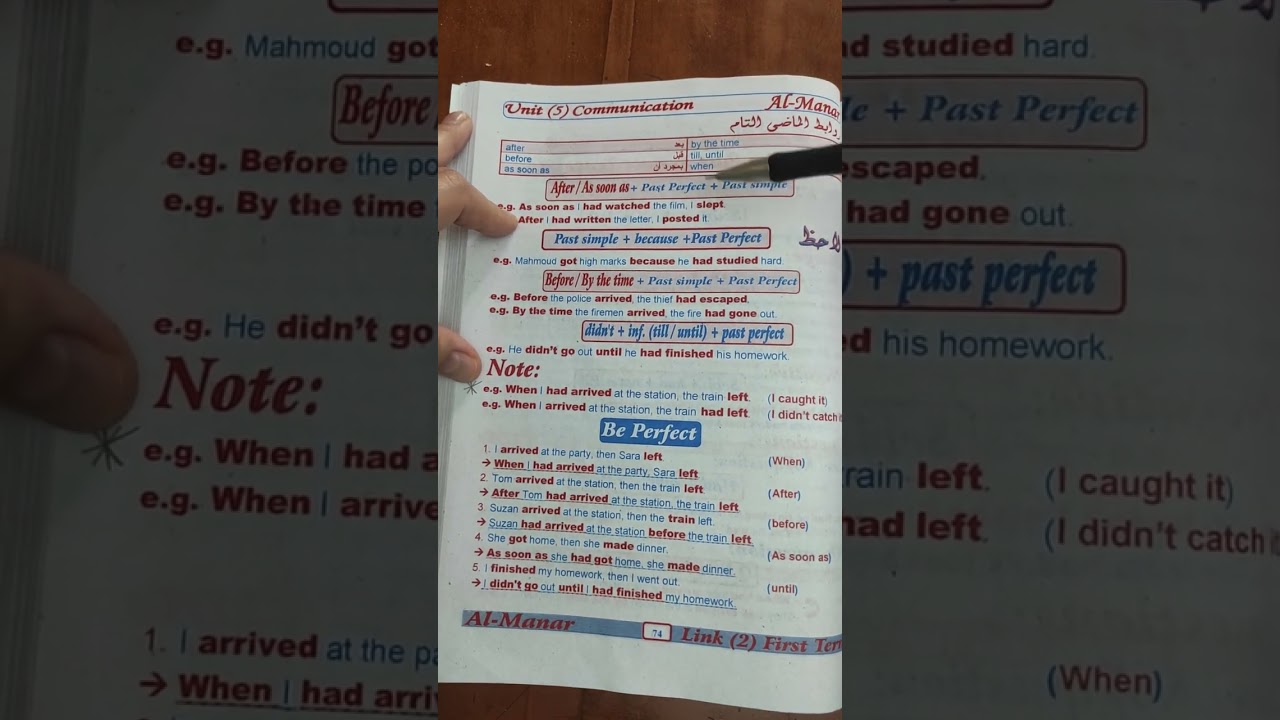 Unit (5) Communication Al-Manar
روابط الماضى التام
after بعد by the time
before قبل till, until
as soon as بمجرد أن when
After / As soon as + Past Perfect + Past simple
e.g. As soon as I had watched the film, I slept.
After I had written the letter, I posted it.
Past simple + because +Past Perfect
لاحظ
e.g. Mahmoud got high marks because he had studied hard.
Before / By the time + Past simple + Past Perfect
e.g. Before the police arrived, the thief had escaped.
e.g. By the time the firemen arrived, the fire had gone out.
didn't + inf. (till / until) + past perfect
e.g. He didn't go out until he had finished his homework.
Note:
e.g. When I had arrived at the station, the train left. (I caught it)
e.g. When I arrived at the station, the train had left. (I didn't catch it
Be Perfect
1. I arrived at the party, then Sara left. (When)
→ When I had arrived at the party, Sara left.
2. Tom arrived at the station, then the train left. (After)
→ After Tom had arrived at the station, the train left.
3. Suzan arrived at the station, then the train left. (before)
→ Suzan had arrived at the station before the train left.
4. She got home, then she made dinner. (As soon as)
→ As soon as she had got home, she made dinner.
5. I finished my homework, then I went out. (until)
→ I didn't go out until I had finished my homework.
Al-Manar 74 Link (2) First Ter